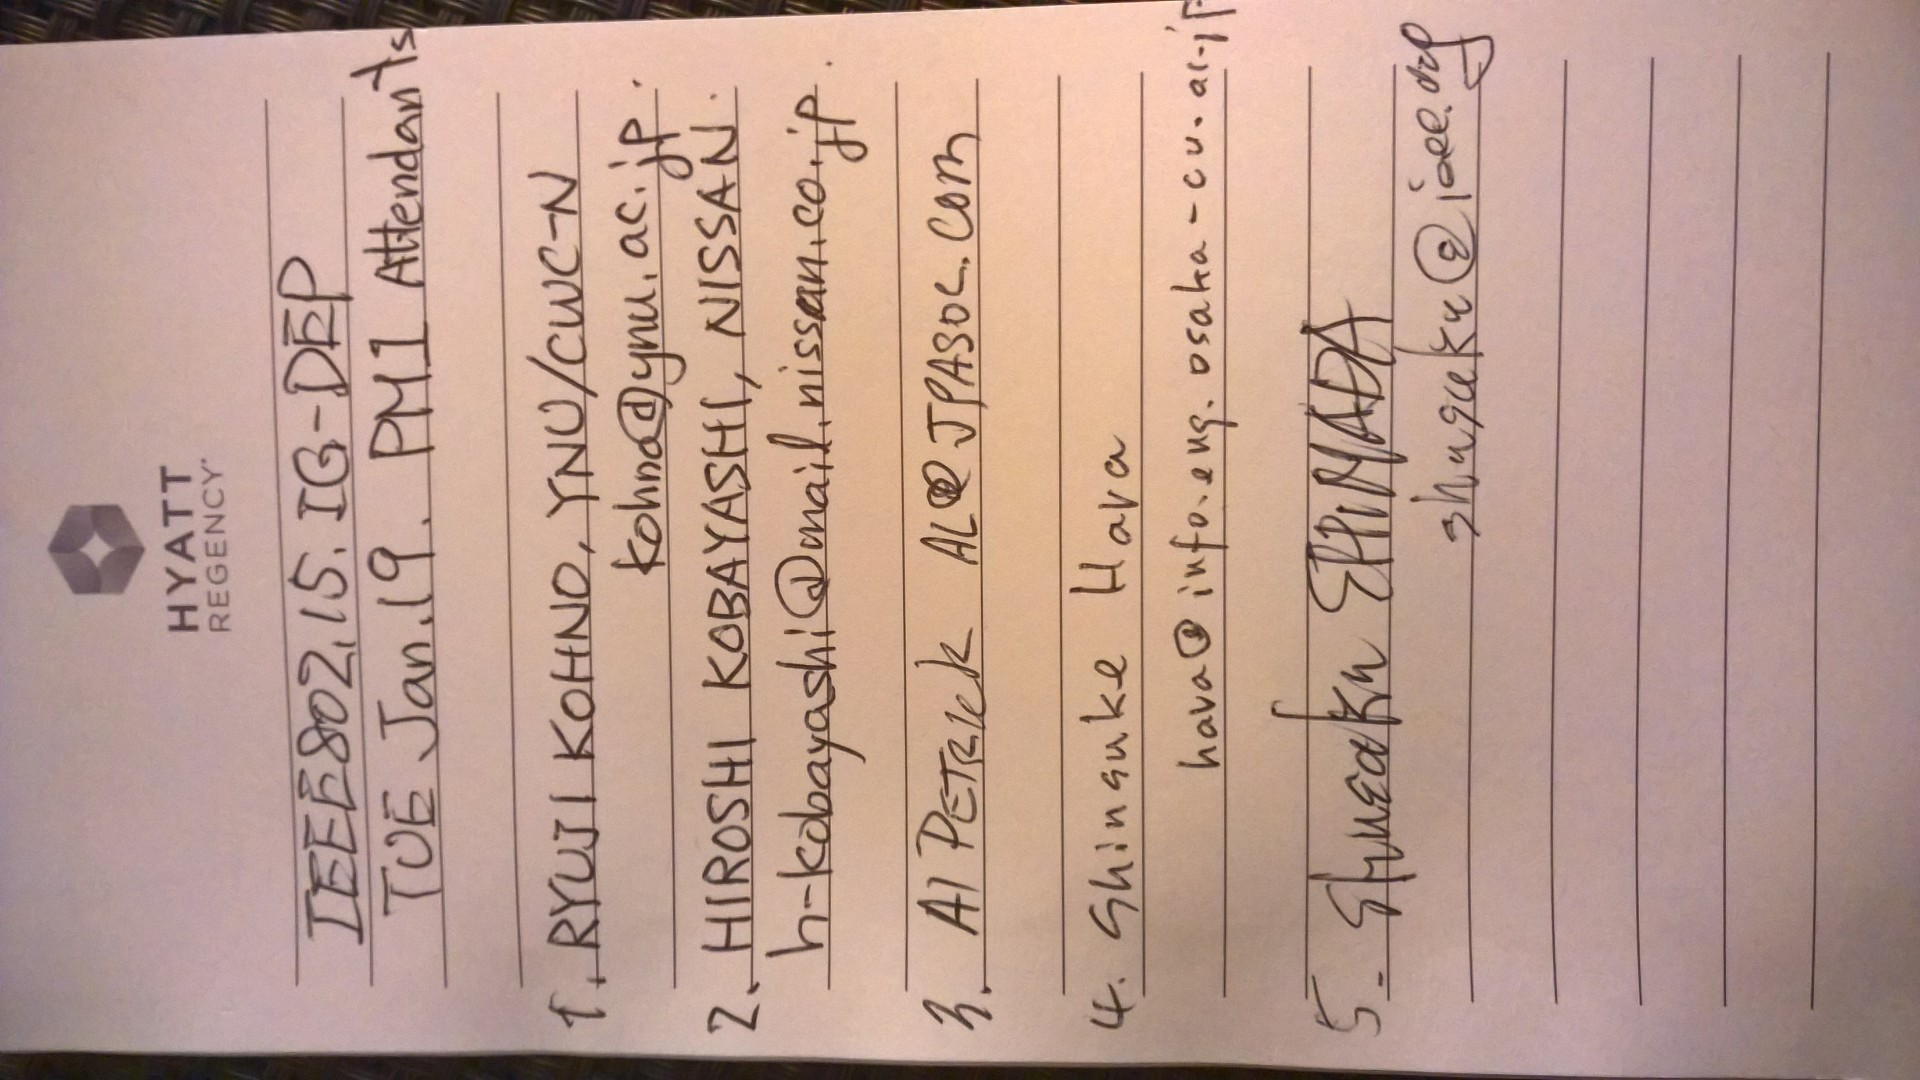 HYATT
REGENCY
IEEE802.15. IG-DEP
TUE Jan.19. PM1 Attendants
1. RYUJI KOHNO, YNU/CWC-N
kohno@ynu.ac.jp.
2. HIROSHI KOBAYASHI, NISSAN.
h-kobayashi@mail.nissan.co.jp.
3. Al PETRICK AL@JPASOC.COM
4. Shinsuke Hara
hara@info.eng.osaka-cu.ac.jp
5. SHIMADA
@ieee.org